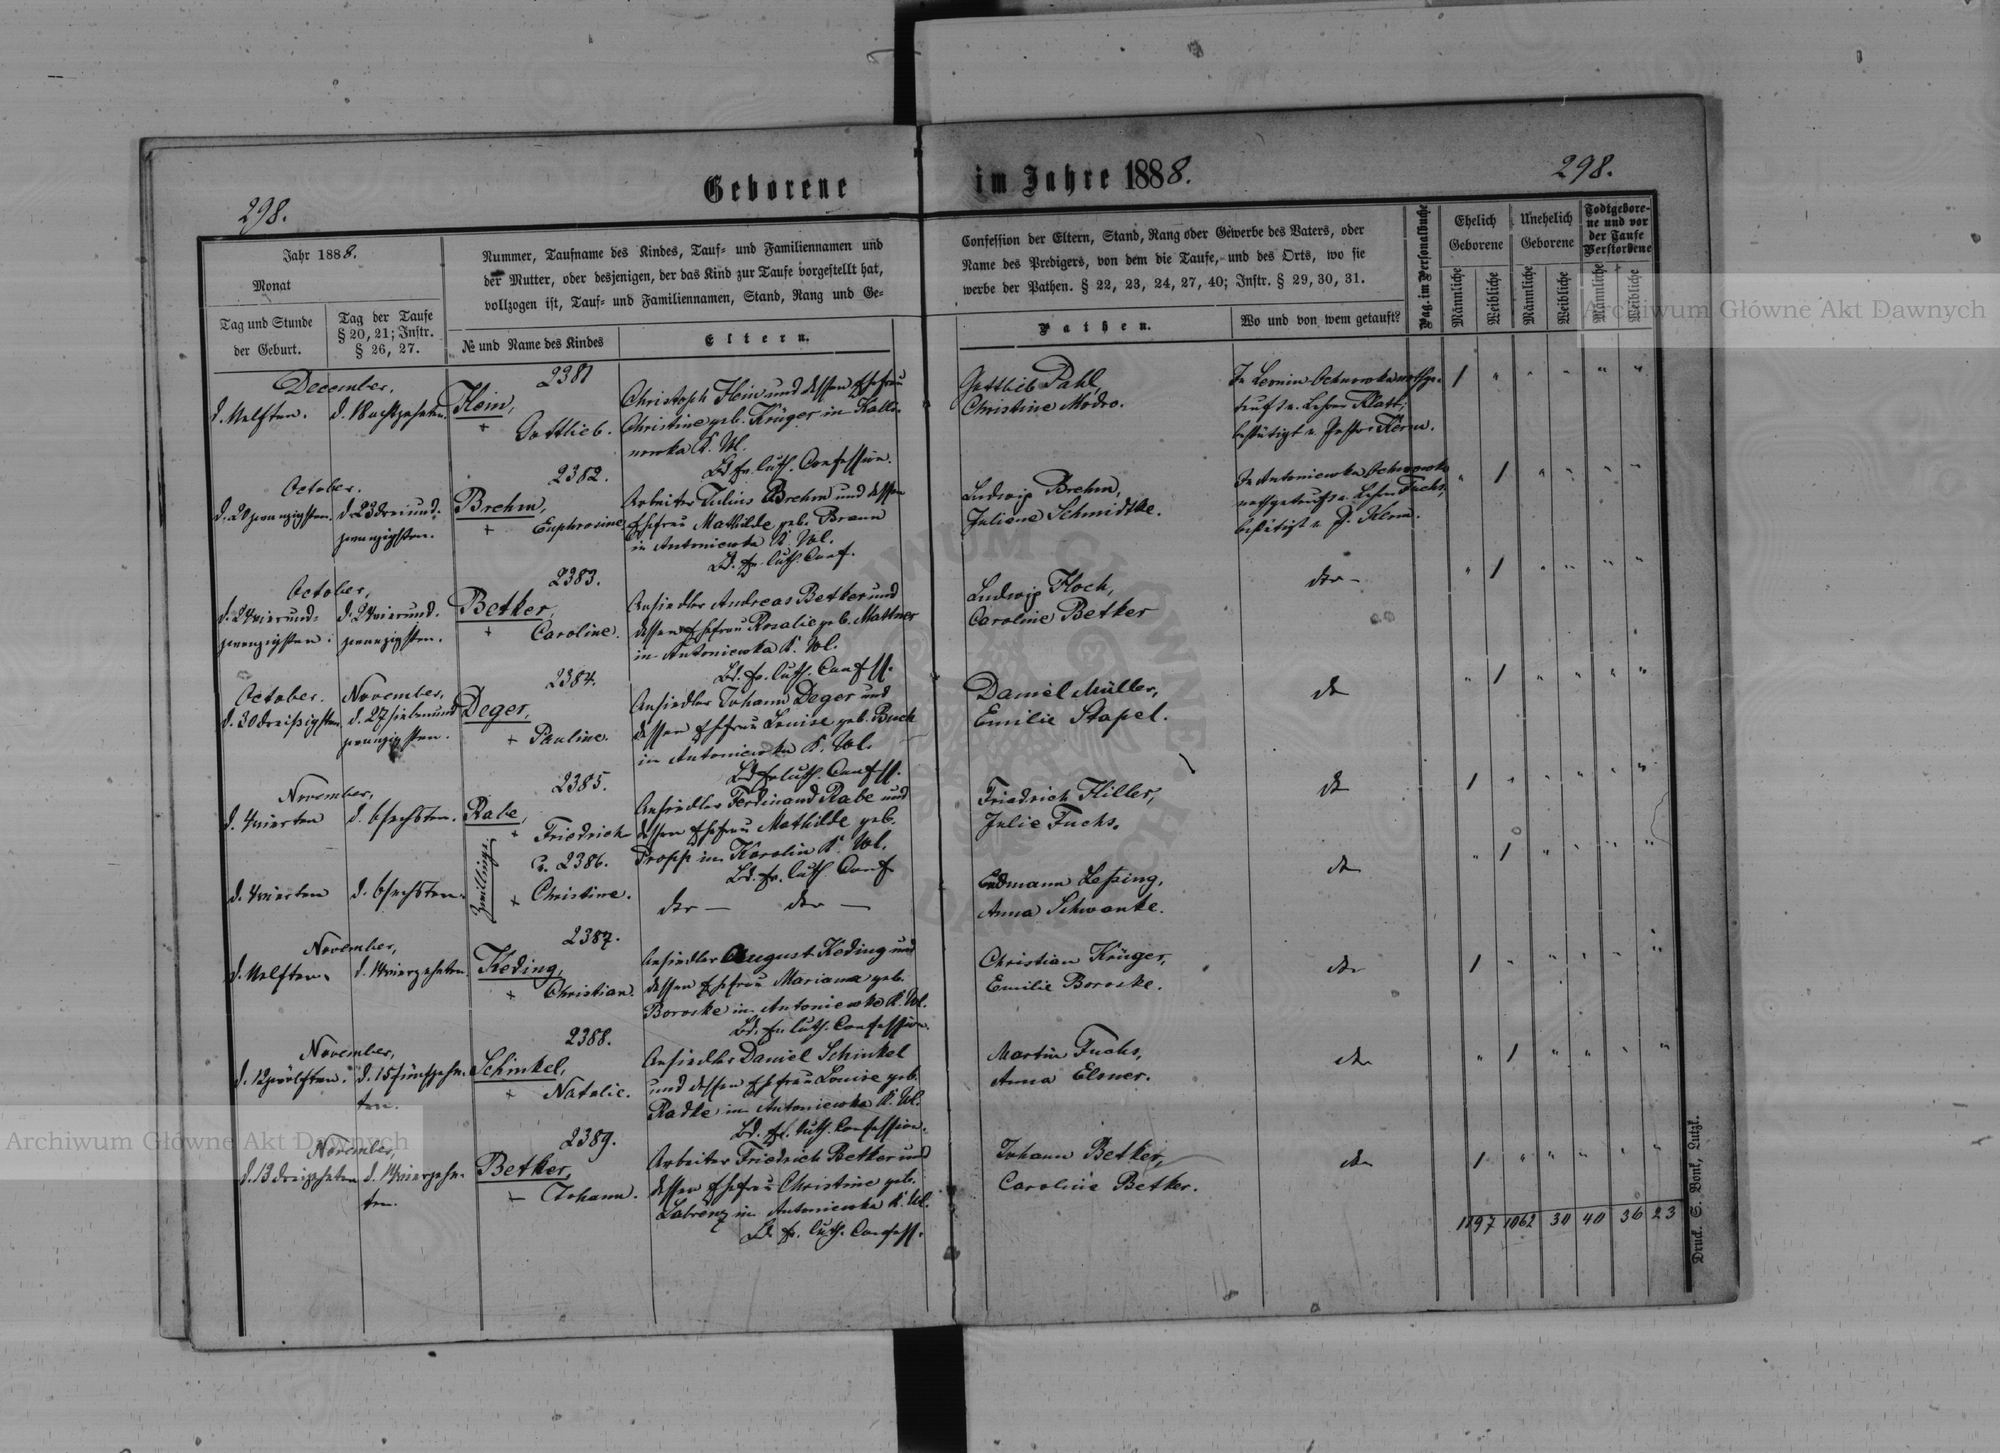 Geborene im Jahre 1888.
298.
298.
Jahr 1888.
Monat
Tag und Stunde
der Geburt.
Tag der Taufe
§ 20, 21; Instr.
§ 26, 27.
Nummer, Taufname des Kindes, Tauf- und Familiennamen und
der Mutter, oder desjenigen, der das Kind zur Taufe vorgestellt hat,
vollzogen ist, Tauf- und Familiennamen, Stand, Rang und Ge-
№ und Name des Kindes
Eltern.
Confession der Eltern, Stand, Rang oder Gewerbe des Vaters, oder
Name des Predigers, von dem die Taufe, und des Orts, wo sie
werbe der Pathen. § 22, 23, 24, 27, 40; Instr. § 29, 30, 31.
Pathen.
Wo und von wem getauft?
Pag. im Personalbuche
Ehelich
Geborene
Unehelich
Geborene
Todtgebore-
ne und vor
der Taufe
Verstorbene
Männliche
Weibliche
Männliche
Weibliche
Männliche
Weibliche
December.
d. 11 elften.
d. 18 achtzehnten.
2381
+
Gottlieb.
Christoph und dessen Ehefrau
Christine geb. Krüger in
K. Wl.
Bd. ev. luth. Confession.
Gottlieb Pahl
Christine Modro.
1 " " " " "
October.
d. 20 zwanzigsten.
d. 23 drei und-
zwanzigsten.
2382.
Brehm,
+ Euphrosine
Arbeiter Julius Brehm und dessen
Ehefrau Mathilde geb. Braun
in Antoniewka K. Wl.
Bd. ev. luth. Conf.
Ludwig Brehm,
Juliane Schmidtke.
" 1 " " " "
October,
d. 24 vierund-
zwanzigsten.
d. 24 vierund-
zwanzigsten.
2383.
Betker,
+ Caroline.
Ansiedler Andreas Betker und
dessen Ehefrau Rosalie geb. Mattner
in Antoniewka K. Wl.
Bd. ev. luth. Confess.
Ludwig
Caroline Betker
dto
" 1 " " " "
October.
d. 30 dreißigsten
November,
d. 27 siebenund
zwanzigsten.
2384.
Deger,
+ Pauline.
Ansiedler Johann Deger und
dessen Ehefrau Louise geb. Buch
in Antoniewka K. Wl.
Bd. ev. luth. Confess.
Daniel Müller,
Emilie Stapel.
dto
" 1 " " " "
November,
d. 4 vierten
d. 6 sechsten.
2385.
Rabe,
+ Friedrich
Ansiedler Ferdinand Rabe und
dessen Ehefrau Mathilde geb.
Propp in Karolin K. Wl.
Bd. ev. luth. Conf
Friedrich Hiller,
Julie Fuchs.
dto
1 " " " " "
Zwillinge.
d. 4 vierten
d. 6 sechsten.
2386.
+ Christine.
dto — dto —
Erdmann Leßing,
Anna Schwanke.
dto
" 1 " " " "
November,
d. 11 elften.
d. 14 vierzehnten
2387.
Keding,
+ Christian.
Ansiedler August Keding und
dessen Ehefrau Mariana geb.
Boroske in Antoniewka K. Wl.
Bd. ev. luth. Confession.
Christian Krüger,
Emilie Boroske.
dto
1 " " " " "
November,
d. 12 zwölften.
d. 15 fünfzehn-
ten.
2388.
Schinkel,
+ Natalie.
Ansiedler Daniel Schinkel
und dessen Ehefrau Louise geb.
Radke in Antoniewka K. Wl.
Bd. ev. luth. Confession.
Martin Fuchs,
Anna Elsner.
dto
" 1 " " " "
November,
d. 13 dreizehnten
d. 14 vierzehn-
ten.
2389.
Betker,
— Johann.
Arbeiter Friedrich Betker und
dessen Ehefrau Christine geb.
Labrenz in Antoniewka K. Wl.
Bd. ev. luth. Confess.
Johann Betker,
Caroline Betker.
dto
1 " " " " "
1197 1062 30 40 36 23
Druck. S. Bonk, Lutzk.
Archiwum Główne Akt Dawnych
Archiwum Główne Akt Dawnych